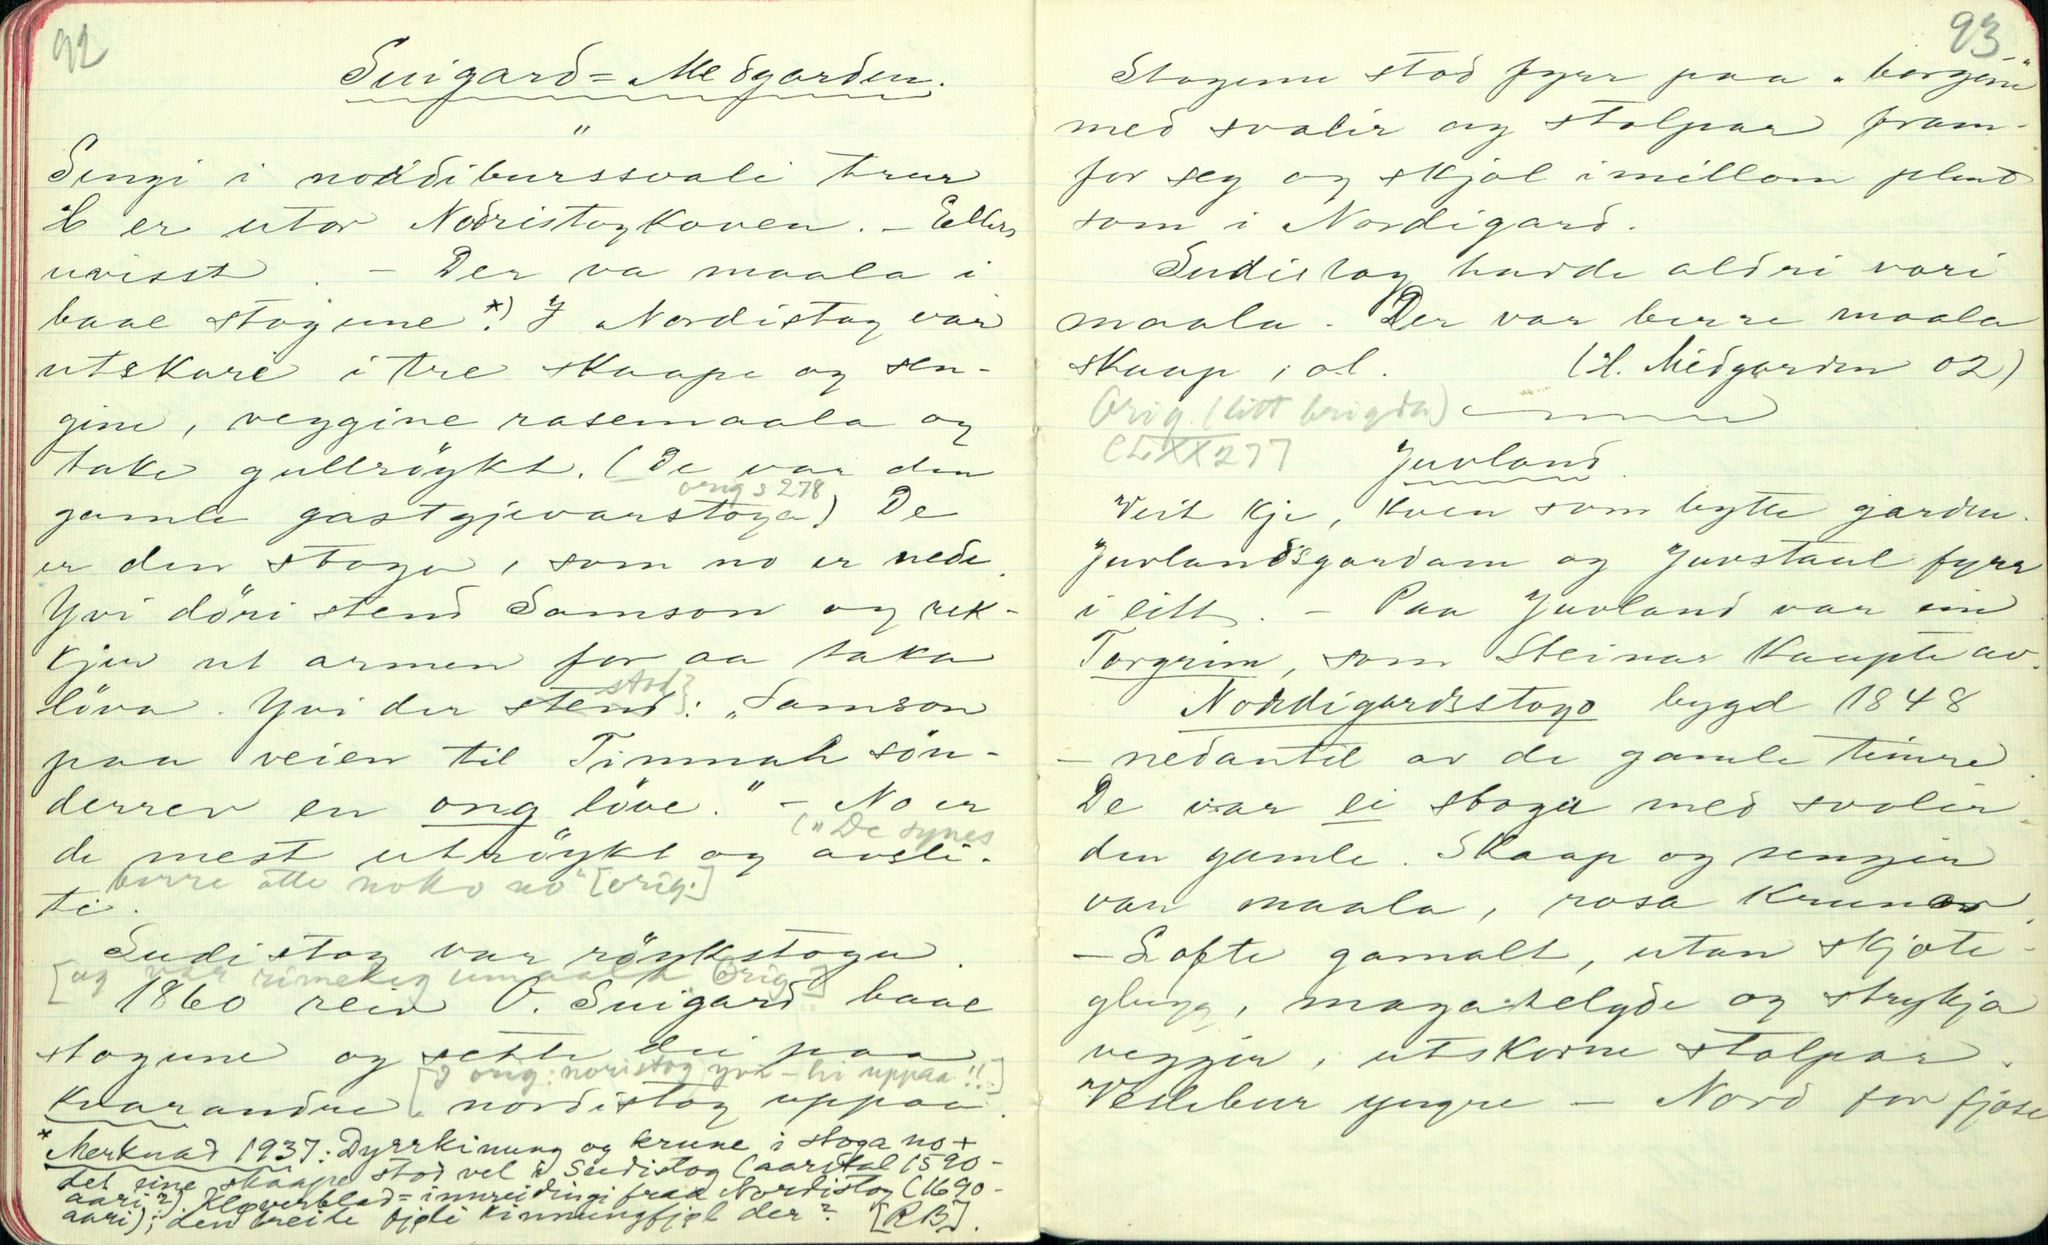 92
Suigard = Medgarden.
"
Sengi i nørdiburssvali trur
H er utor Nordistogkoven. — Ellers
uvisst. — Der va maala i
baae stogune*). I Nordistog var
utskore i tre skaape og sen-
gine, veggine rosemaala og
take gullrøykt. (De var den
orig s 278
gamle gastgjevarstoga) De
er den stoga, som no er nede.
Yvi döri stend Samson og rek-
kjer ut armen for aa taka
stod]
löva. Yvi der stend: „Samson
paa veien til Timnah sön-
derrev en ong löve." — No er
(„De synes
de mest utröykt og avsli-
berre åtte noko no" [orig.]
te.
Sudistog var röykstoga.
[og var rimeleg umaala. Orig.]
1860 reiv O. Suigard baae
stogune og sette dei paa
[I orig: noristog yvi — hi uppaa!!]
kvarandre, nordistog uppaa.
* Merknad 1937: Dyrrkinung og krune i stoga no +
det eine skaape stod vel i Sudistog (aarstal 1590-
aari?). Kløverblad = innreidingi fraa Nordistog (1690-
aari); den breite fjøli kinnungfjøl der? [RB].
93
Stogene stod fyrr paa „borgine"
med svalir og stolpar fram-
for seg og skjol imillom plent
som i Nordigard.
Sudistog hadde aldri vori
maala. Der var berre maala
skaap, ol. (H. Medgarden 02)
Orig. (litt brigda)
CLXX 277
Juvland.
Veit kje, kven som bytte garden.
Juvlandsgardam og Juvstaul fyrr
i eitt. — Paa Juvland var ein
Torgrim, som Steinar kaupte av.
Nordigardsstogo bygd 1848
— nedantil av de gamle timre.
De var ei stoga med svalir
den gamle. Skaap og sengjir
var maala, rosa krunor.
— Lofte gamalt, utan skjote-
glugg, magahelgde og strykja
veggir, utskorne stolpar.
Vetlebur yngre — Nord for fjose